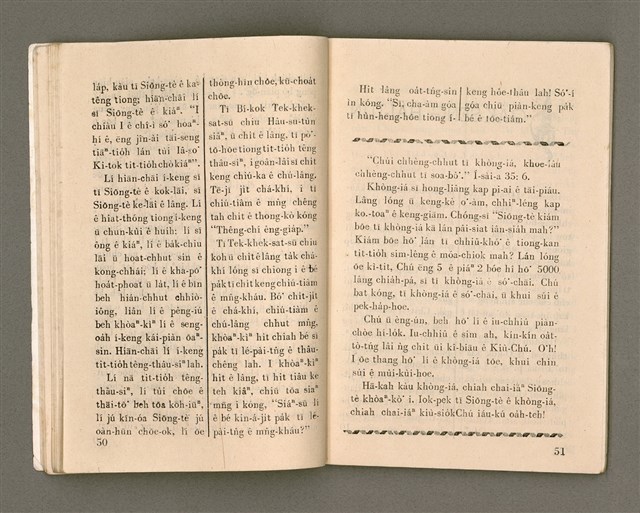 láp, kàu tī Siōng-tè ê ka-
têng tiong; hiān-chāi lí
sī Siōng-tè ê kiáⁿ. "I
chiàu I ê chí-ì só͘ hoaⁿ-
hí ê, ēng jîn-ài tāi-seng
tiāⁿ-tio̍h lán tùi Iâ-so͘
Ki-tok tit-tio̍h chò kiáⁿ".
Lí hiān-chāi í-keng sī
tī Siōng-tè ê kok-lāi, sī
Siōng-tè ke-lāi ê lâng. Lí
ê hiat-thóng tiong í-keng
ū chun-kùi ê huih: lí sī
ông ê kiáⁿ, lí ê ba̍k-chiu
lāi ū hoat-chhut sin ê
kong-chhái; lí ê kha-pō͘
hoa̍t-phoat ū la̍t, lí ê bīn
beh hiàn-chhut chhiò-
iông, liân lí ê pêng-iú
beh khòaⁿ-kìⁿ lí ê seng-
oa̍h í-keng kái-pián oáⁿ-
sin. Hiān-chāi lí í-keng
tit-tio̍h têng-thâu-siⁿ lah.
Lí nā tit-tio̍h têng-
thâu-siⁿ, lí tùi chōe ê
thāi-tō͘ beh tōa kōh-iūⁿ,
lí jú kīn-óa Siōng-tè jú
oàn-hūn chōe-ok, lí ōe
50
thòng-hīn chōe, kū-choa̍t
chōe.
Tī Bí-kok Tek-khek-
sat-sū chiu Hâu-su-tún
siâⁿ, ū chi̍t ê lâng, tī pò͘-
tō-hōe tiong tit-tio̍h têng
thâu-siⁿ, i goân-lâi sī chi̍t
keng chiú-ka ê chú-lâng.
Tē-jī ji̍t chá-khí, i tī
chiú-tiàm ê mn̂g chêng
tah chi̍t ê thong-kò kóng
"Thêng-chí êng-gia̍p."
Tī Tek-khek-sat-sū chiu
koh ū chi̍t ê lâng ta̍k chá-
khí lóng sī chiong i ê bé
pa̍k tī chi̍t keng chiú-tiàm
ê mn̂g-kháu. Bó͘ chi̍t-ji̍t
ê chá-khí, chiú-tiàm ê
chú-lâng chhut mn̂g,
khòaⁿ-kìⁿ hit chiah bé sī
pa̍k tī lé-pài-tn̂g ê thâu-
chêng lah. I khòaⁿ-kìⁿ
hit ê lâng, tī hit tiâu ke
teh kiâⁿ, chiū tōa siaⁿ
mn̄g i kóng, "Siáⁿ-sū lí
ê bé kin-á-ji̍t pa̍k tī lé-
pài-tn̂g ê mn̂g-kháu?"
Hit lâng oa̍t-tńg-sin
ìn kóng, "Sī, cha-àm góa
tī hùn-heng-hōe tiong í-
keng hóe-thâu lah! Só͘-í
góa chiū piàn-keng pa̍k
bé ê tōe-tiám."
"Chúi chhèng-chhut tī khòng-iá, khoe-lâu
chhèng-chhut tī soa-bô͘." Í-sāi-a 35: 6.
Khòng-iá sī hong-liâng kap pi-ai ê tāi-piáu.
Lâng lóng ū keng-kè o͘-àm, chhiⁿ-léng kap
ko͘-toaⁿ ê keng-giām. Chóng-sī "Siōng-tè kiám
bōe tī khòng-iá kā lán pâi-siat iân-sia̍h mah?"
Kiám bōe hō͘ lán tī chhiú-khó͘ ê tiong-kan
tit-tio̍h sim-lêng ê móa-chiok mah? Lán lóng
ōe kì-tit, Chú ēng 5 ê piáⁿ 2 bóe hî hō͘ 5000
lâng chia̍h-pá, sī tī khòng-iá ê só͘-chāi. Chú
bat kóng, tī khòng-iá ê só͘-chāi, ū khui súi ê
pek-ha̍p-hoe.
Chú ū èng-ún, beh hō͘ lí ê iu-chhiû piàn-
chòe hí-lo̍k. Iu-chhiû ê sim ah, kín-kín oa̍t-
tò-tńg lâi n̂g chi̍t ūi kî-biāu ê Kiù-Chú. O͘h!
I ōe thang hō͘ lí ê khòng-iá tōe, khui chin
súi ê mûi-kùi-hoe.
Hā-kah kàu khòng-iá, chiah chai-iáⁿ Siōng-
tè khòaⁿ-kò͘ i. Iok-pek tī Siōng-tè ê khòng-iá,
chiah chai-iáⁿ kiù-sio̍k Chú iáu-kú oa̍h-teh!
51